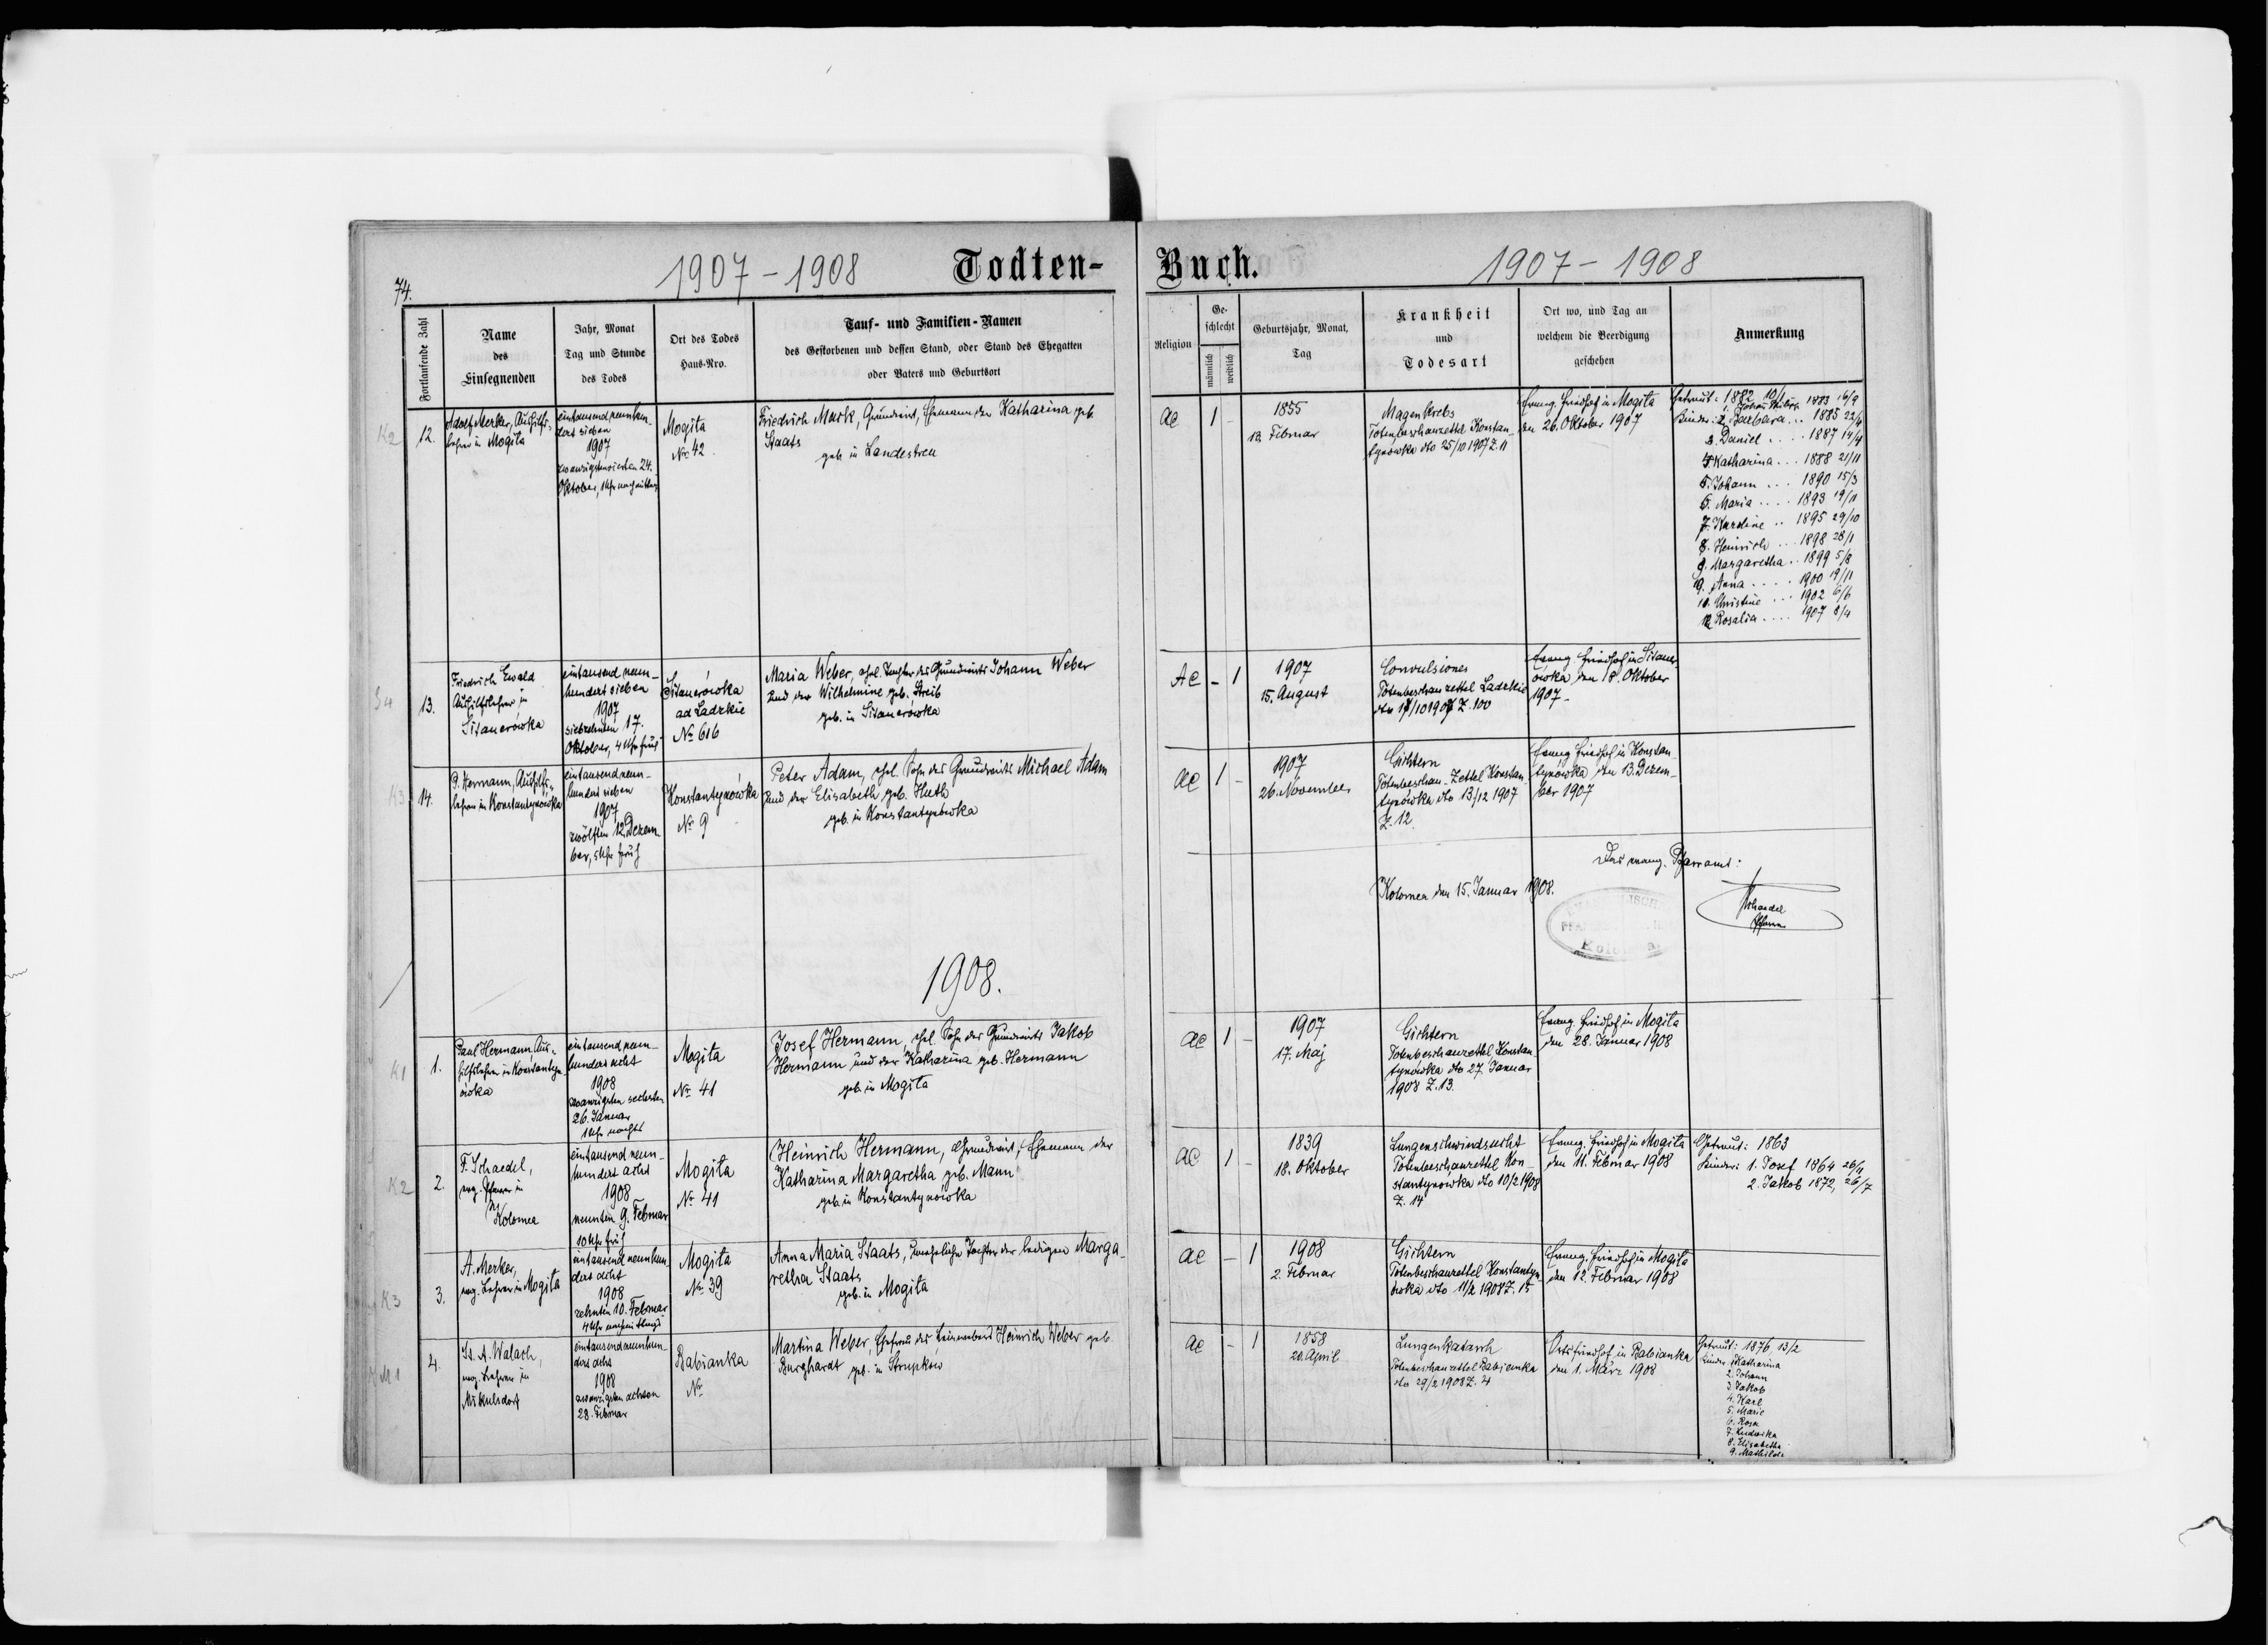 74.
1907 - 1908
Todten-
Buch.
1907 - 1908
Fortlaufende Zahl
Name
des
Einsegnenden
Jahr, Monat
Tag und Stunde
des Todes
Ort des Todes
Haus-Nro.
Tauf- und Familien-Namen
des Gestorbenen und dessen Stand, oder Stand des Ehegatten
oder Vaters und Geburtsort
Religion
Ge-
schlecht
männlich
weiblich
Geburtsjahr, Monat,
Tag
Krankheit
und
Todesart
Ort wo, und Tag an
welchem die Beerdigung
geschehen
Anmerkung
K2
12.
Adolf Merker, Aushilfs-
lehrer in Mogiła
eintausend neunhun-
dert sieben
1907
zwanzigstenvierten 24.
Oktober, 1 Uhr nachmittags
Mogiła
No. 42
Friedrich Mark, Grundwirt, Ehemann der Katharina geb.
Staats
geb. in Landestreu
AC
1
-
1855
13. Februar
Magenkrebs
Totenbeschauzettel Konstan-
tynówka dto 25/10 1907 Z. 11
Evang. Friedhof in Mogiła
den 26. Oktober 1907
Getraut: 1882 10/1
1. Johann 1883 16/9
Kinder: 2. Barbara... 1885 22/4
3. Daniel .... 1887 14/4
4. Katharina... 1888 21/11
5. Johann .... 1890 15/3
6. Maria .... 1893 19/11
7. Karoline .. 1895 29/10
8. Heinrich ... 1898 28/1
9. Margaretha .. 1899 5/8
9. Anna ..... 1900 19/11
10. Christine ... 1902 6/6
12. Rosalia .... 1907 8/4
S4
13.
Friedrich Ewald
Aushilfslehrer in
Sitauerówka
eintausend neun-
hundert sieben
1907
siebzehnten 17.
Oktober, 4 Uhr früh
Sitauerówka
ad Ladzkie
No 616
Maria Weber, ehel. Tochter des Grundwirts Johann Weber
und der Wilhelmine geb. Streib
geb. in Sitauerówka
AC
-
1
1907
15. August
Convulsiones
Totenbeschauzettel Ladzkie
dto 17/10 1907 Z. 100
Evang. Friedhof in Sitauer-
ówka, den 18. Oktober
1907-
K3
14.
P. Hermann, Aushilfs-
lehrer in Konstantynówka
eintausend neun-
hundert sieben
1907
zwölften 12. Dezem-
ber, 5 Uhr früh
Konstantynówka
No 9
Peter Adam, ehel. Sohn des Grundwirts Michael Adam
und der Elisabeth geb. Huth
geb. in Konstantynówka
AC
1
-
1907
26. November
Gichtern
Totenbeschau-Zettel Konstan-
tynówka dto 13/12 1907
Z. 12.
Evang. Friedhof in Konstan-
tynówka den 13. Dezem-
ber 1907
Das evang. Pfarramt:
Kolomea den 15. Januar 1908.
Pfarrer
1908.
K1
1.
Paul Hermann, Aus-
hilfslehrer in Konstantyn-
ówka
eintausend neun-
hundert acht
1908
zwanzigsten sechsten
26. Januar
1 Uhr nachts
Mogiła
No 41
Josef Hermann, ehel. Sohn des Grundwirts Jakob
Hermann und der Katharina geb. Hermann
geb. in Mogiła
AC
1
-
1907
17. Maj
Gichtern
Totenbeschauzettel Konstan-
tynówka dto 27. Januar
1908 Z. 13.
Evang. Friedhof in Mogiła
den 28. Januar 1908
K2
2.
F. Schaedel,
evg. Pfarrer in
Kolomea
eintausend neun-
hundert acht
1908
neunten 9. Februar
10 Uhr früh
Mogiła
No 41
Heinrich Hermann, Grundwirt, Ehemann der
Katharina Margaretha geb. Mann
geb. in Konstantynówka
AC
1
-
1839
18. Oktober
Lungenschwindsucht
Totenbeschauzettel Kon-
stantynowka dto 10/2 1908
Z. 14
Evang. Friedhof in Mogiła
den 11. Februar 1908
Getraut: 1863
Kinder: 1. Josef 1864 26/11
2. Jakob 1872, 26/7
K3
3.
A. Merker,
evg. Lehrer in Mogiła
eintausend neunhun-
dert acht
1908
zehnten 10. Februar
4 Uhr nachmittags
Mogiła
No 39
Anna Maria Staats, uneheliche Tochter der ledigen Marga-
retha Staats
geb. in Mogiła
AC
-
1
1908
2. Februar
Gichtern
Totenbeschauzettel Konstantyn-
ówka dto 11/2 1908 Z. 15
Evang. Friedhof in Mogiła
den 12. Februar 1908
M1
4.
St. A. Walach,
evg. Lehrer in
Mikulsdorf
eintausendneunhun-
dert acht
1908
zwanzigsten achten
28. Februar
Babianka
No
Martina Weber, Ehefrau des Leinwebers Heinrich Weber geb.
Burghardt geb. in Strupków
AC
-
1
1858
20. April
Lungenkatarrh
Totenbeschauzettel Babianka
dto 29/2 1908 Z. 4
Ortsfriedhof in Babianka
den 1. März 1908
Getraut: 1876 13/2
Kinder: 1. Katharina
2. Johann
3. Jakob
4. Karl
5. Marie
6. Rosa
7. Ludwika
8. Elisabetha
9. Mathilde